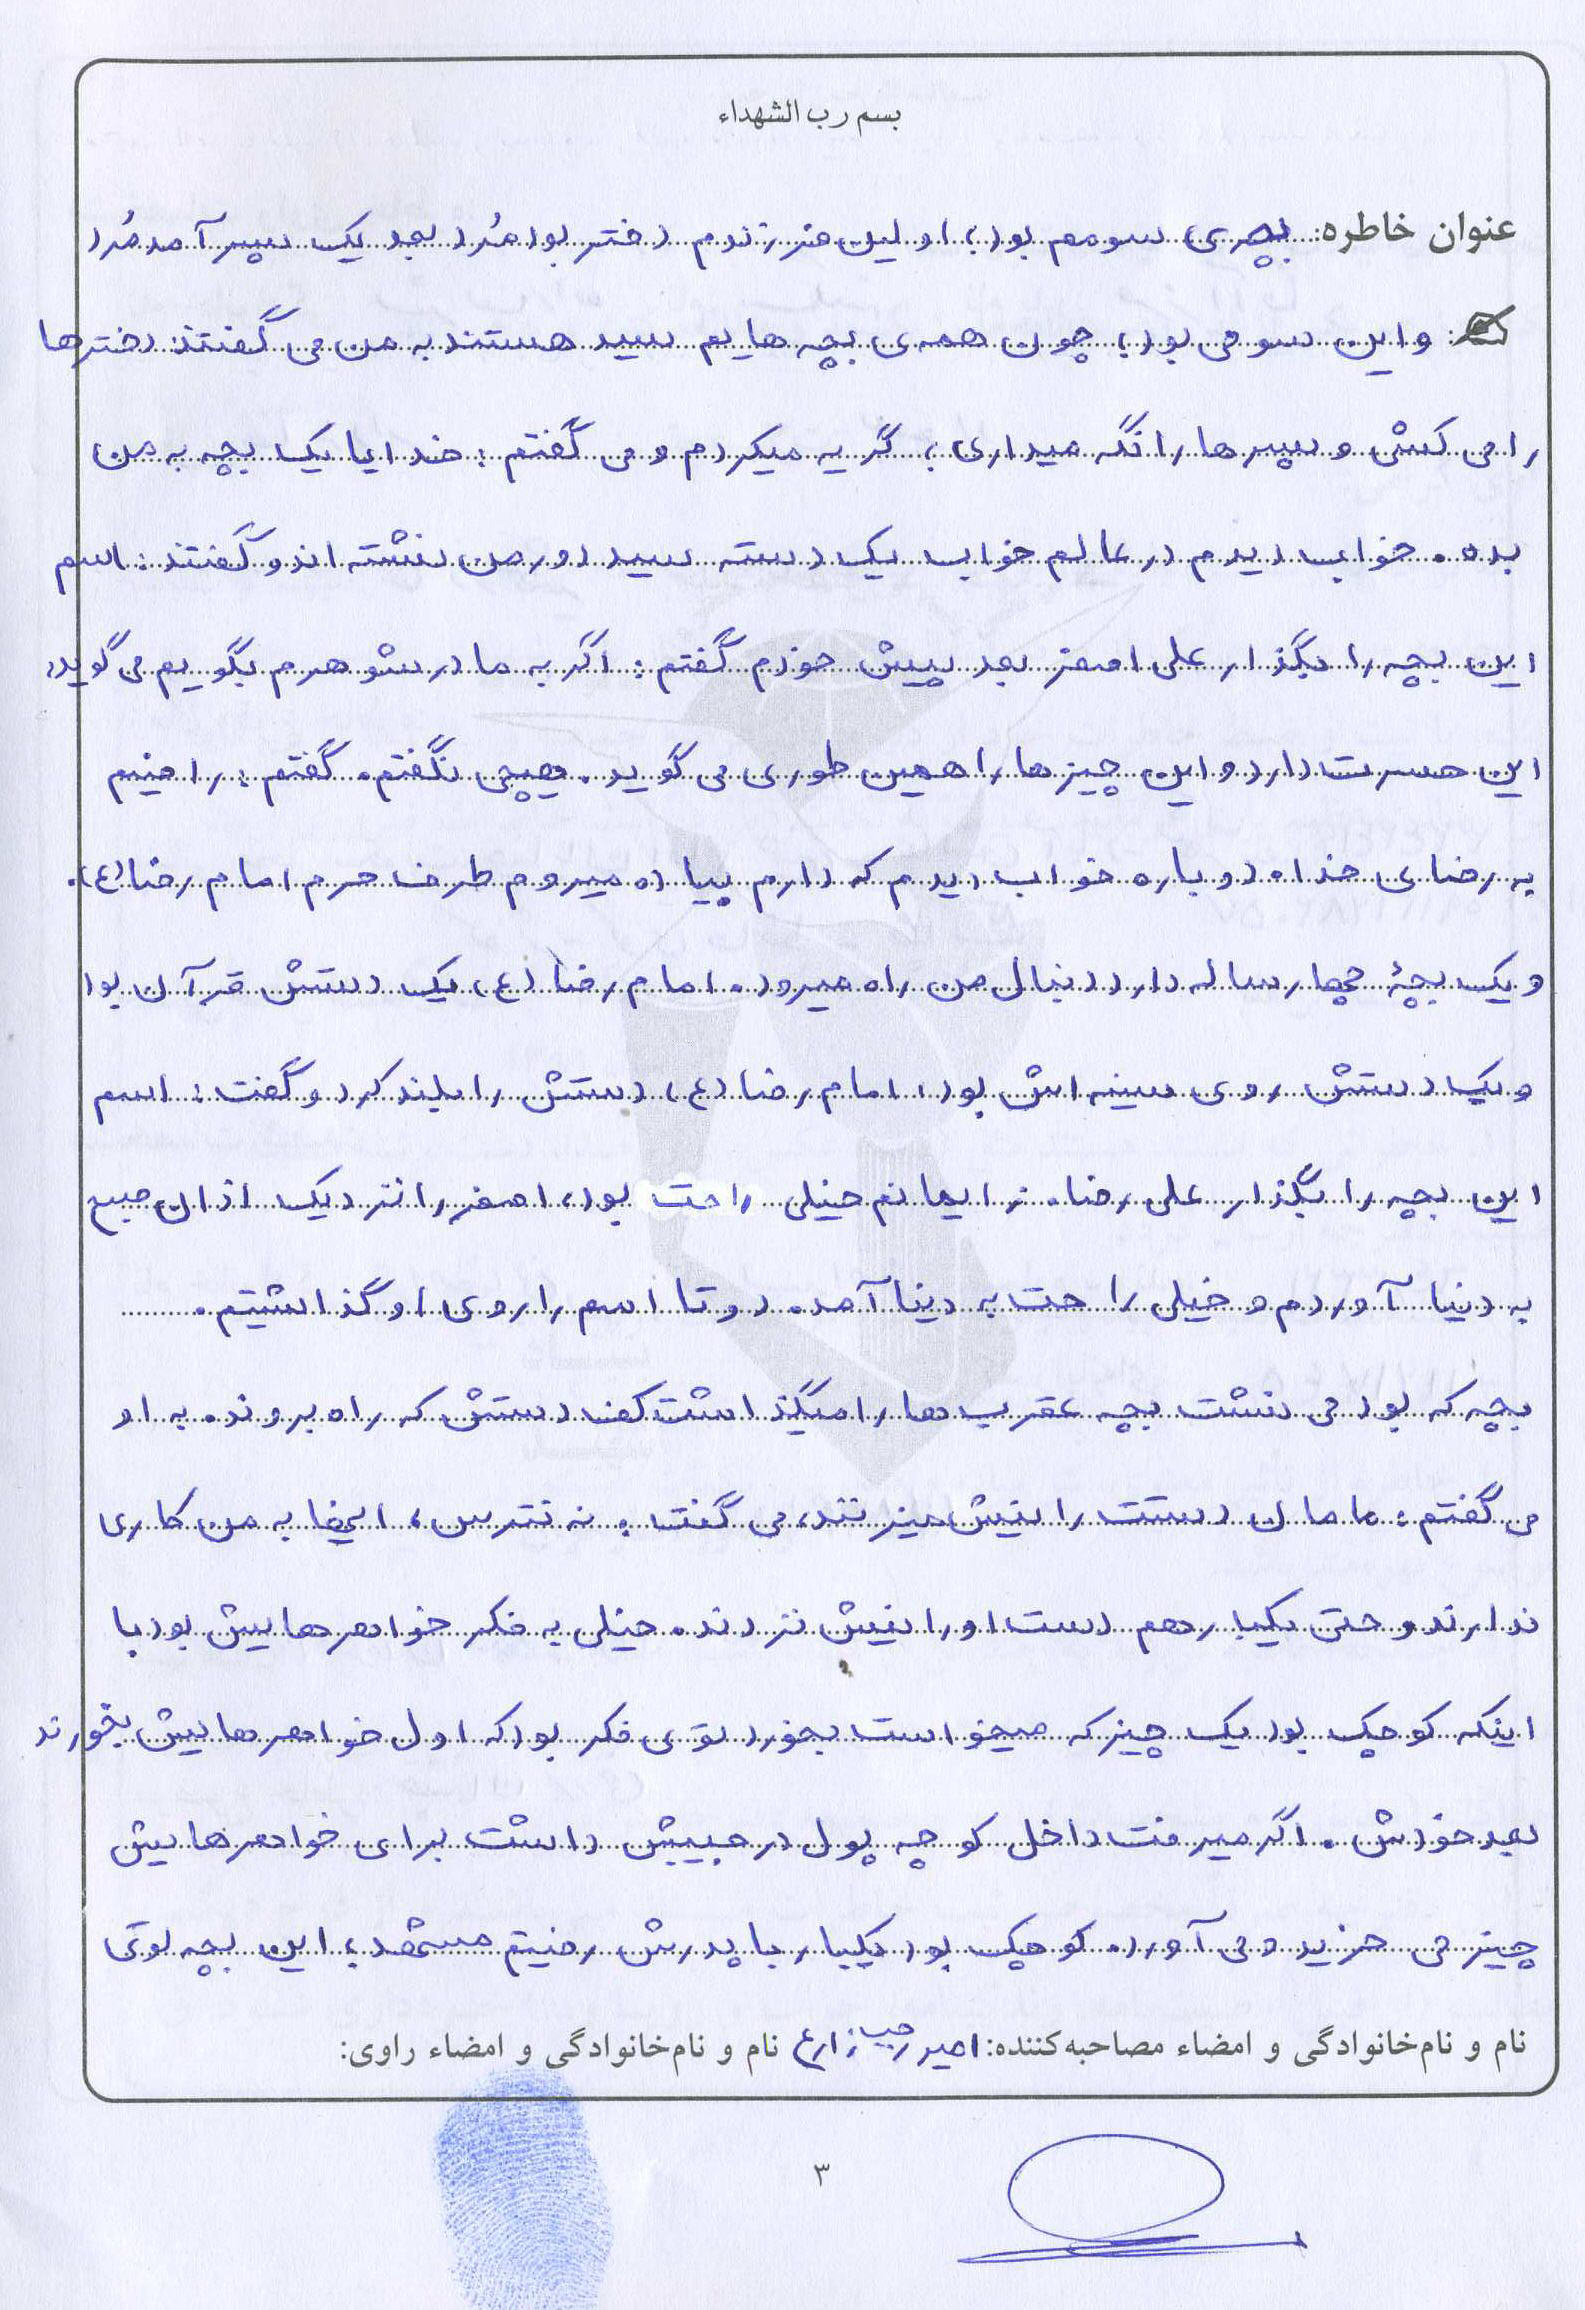 بسم رب الشهداء
عنوان خاطره: بچه‌ی سومم بود، اولین فرزندم دختر بود مُرد بعد یک پسر آمد مُرد
و این سومی بود، چون همه‌ی بچه هایم سید هستند به من می گفتند: دخترها
را می کشی و پسرها را نگه میداری، گریه میکردم و می گفتم: خدایا یک بچه به من
بده. خواب دیدم در عالم خواب یک دسته سید دور من نشسته اند و گفتند: اسم
این بچه را بگذار علی اصغر بعد پیش خودم گفتم: اگر به مادر شوهرم بگویم می گوید:
این حسرت دارد و این چیزها را همین طوری می گوید. هیچی نگفتم. گفتم: راضیم
به رضای خدا. دوباره خواب دیدم که دارم پیاده میروم طرف حرم امام رضا (ع).
و یک بچهٔ چهارساله دارد دنبال من راه میرود. امام رضا (ع) یک دستش قرآن بود
و یک دستش روی سینه اش بود، امام رضا (ع) دستش را بلند کرد و گفت: اسم
این بچه را بگذار علی رضا. زایمانم خیلی راحت بود، اصغر را نزدیک اذان صبح
به دنیا آوردم و خیلی راحت به دنیا آمد. دو تا اسم را روی او گذاشتیم.
بچه که بود می نشست بچه عقرب ها را میگذاشت کف دستش که راه بروند. به او
می گفتم: مامان دستت را نیش میزنند، می گفت: نه نترس، اینها به من کاری
ندارند و حتی یکبار هم دست او را نیش نزدند. خیلی به فکر خواهرهایش بود با
اینکه کوچک بود یک چیز که میخواست بخورد توی فکر بود که اول خواهرهایش بخورند
بعد خودش. اگر میرفت داخل کوچه پول در جیبش داشت برای خواهرهایش
چیز می خرید و می آورد. کوچک بود یکبار با پدرش رفتیم مشهد، این بچه توی
نام و نام‌خانوادگی و امضاء مصاحبه‌کننده: امیر رجب زارع نام و نام‌خانوادگی و امضاء راوی:
۳